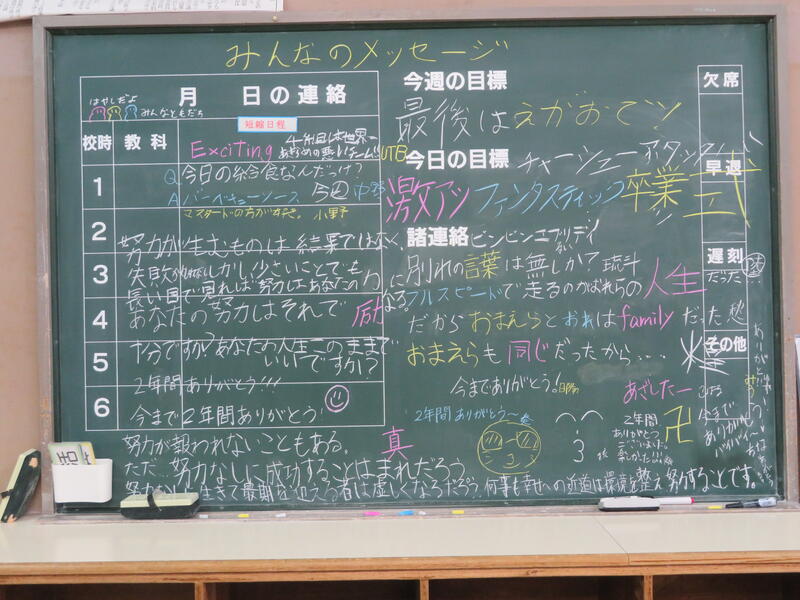 みんなのメッセージ
月 日の連絡
はやしだよ
みんなともだち
校時 教科
短縮日程
Exciting
1
Q 今日の給食なんだっけ?
A バーベキューソース
マスタードの方が好き。
2
努力が生むものは結果ではなく、
3
失敗かもしれない しかし、少さいことでも
長い目で見れば努力はあなたの力に
4
あなたの努力はそれで
励
なる。
5
十分ですか?あなたの人生このままで
いいですか?
2年間ありがとう!!!
6
今まで2年間ありがとう!
努力が報われないこともある。
真
ただ…努力なしに成功することはまれだろう。
今週の目標
最後はえがおでッ!
今日の目標
チャーシュー
激アツ ファンタスティック 卒業式
諸連絡
ビンビンエブリデイ
別れの言葉は無しか?
フルスピードで走るのがおれらの人生
だからおまえらとおれはfamily だった
おまえらも同じだったから‥‥
今までありがとう!
あざしたー
2年間ありがとう〜
2年間
ありがとう
ございました。
楽しかった!!!
卍
何事も幸せへの近道は環境を整え努力することです。
欠席
早退
遅刻
だった
その他